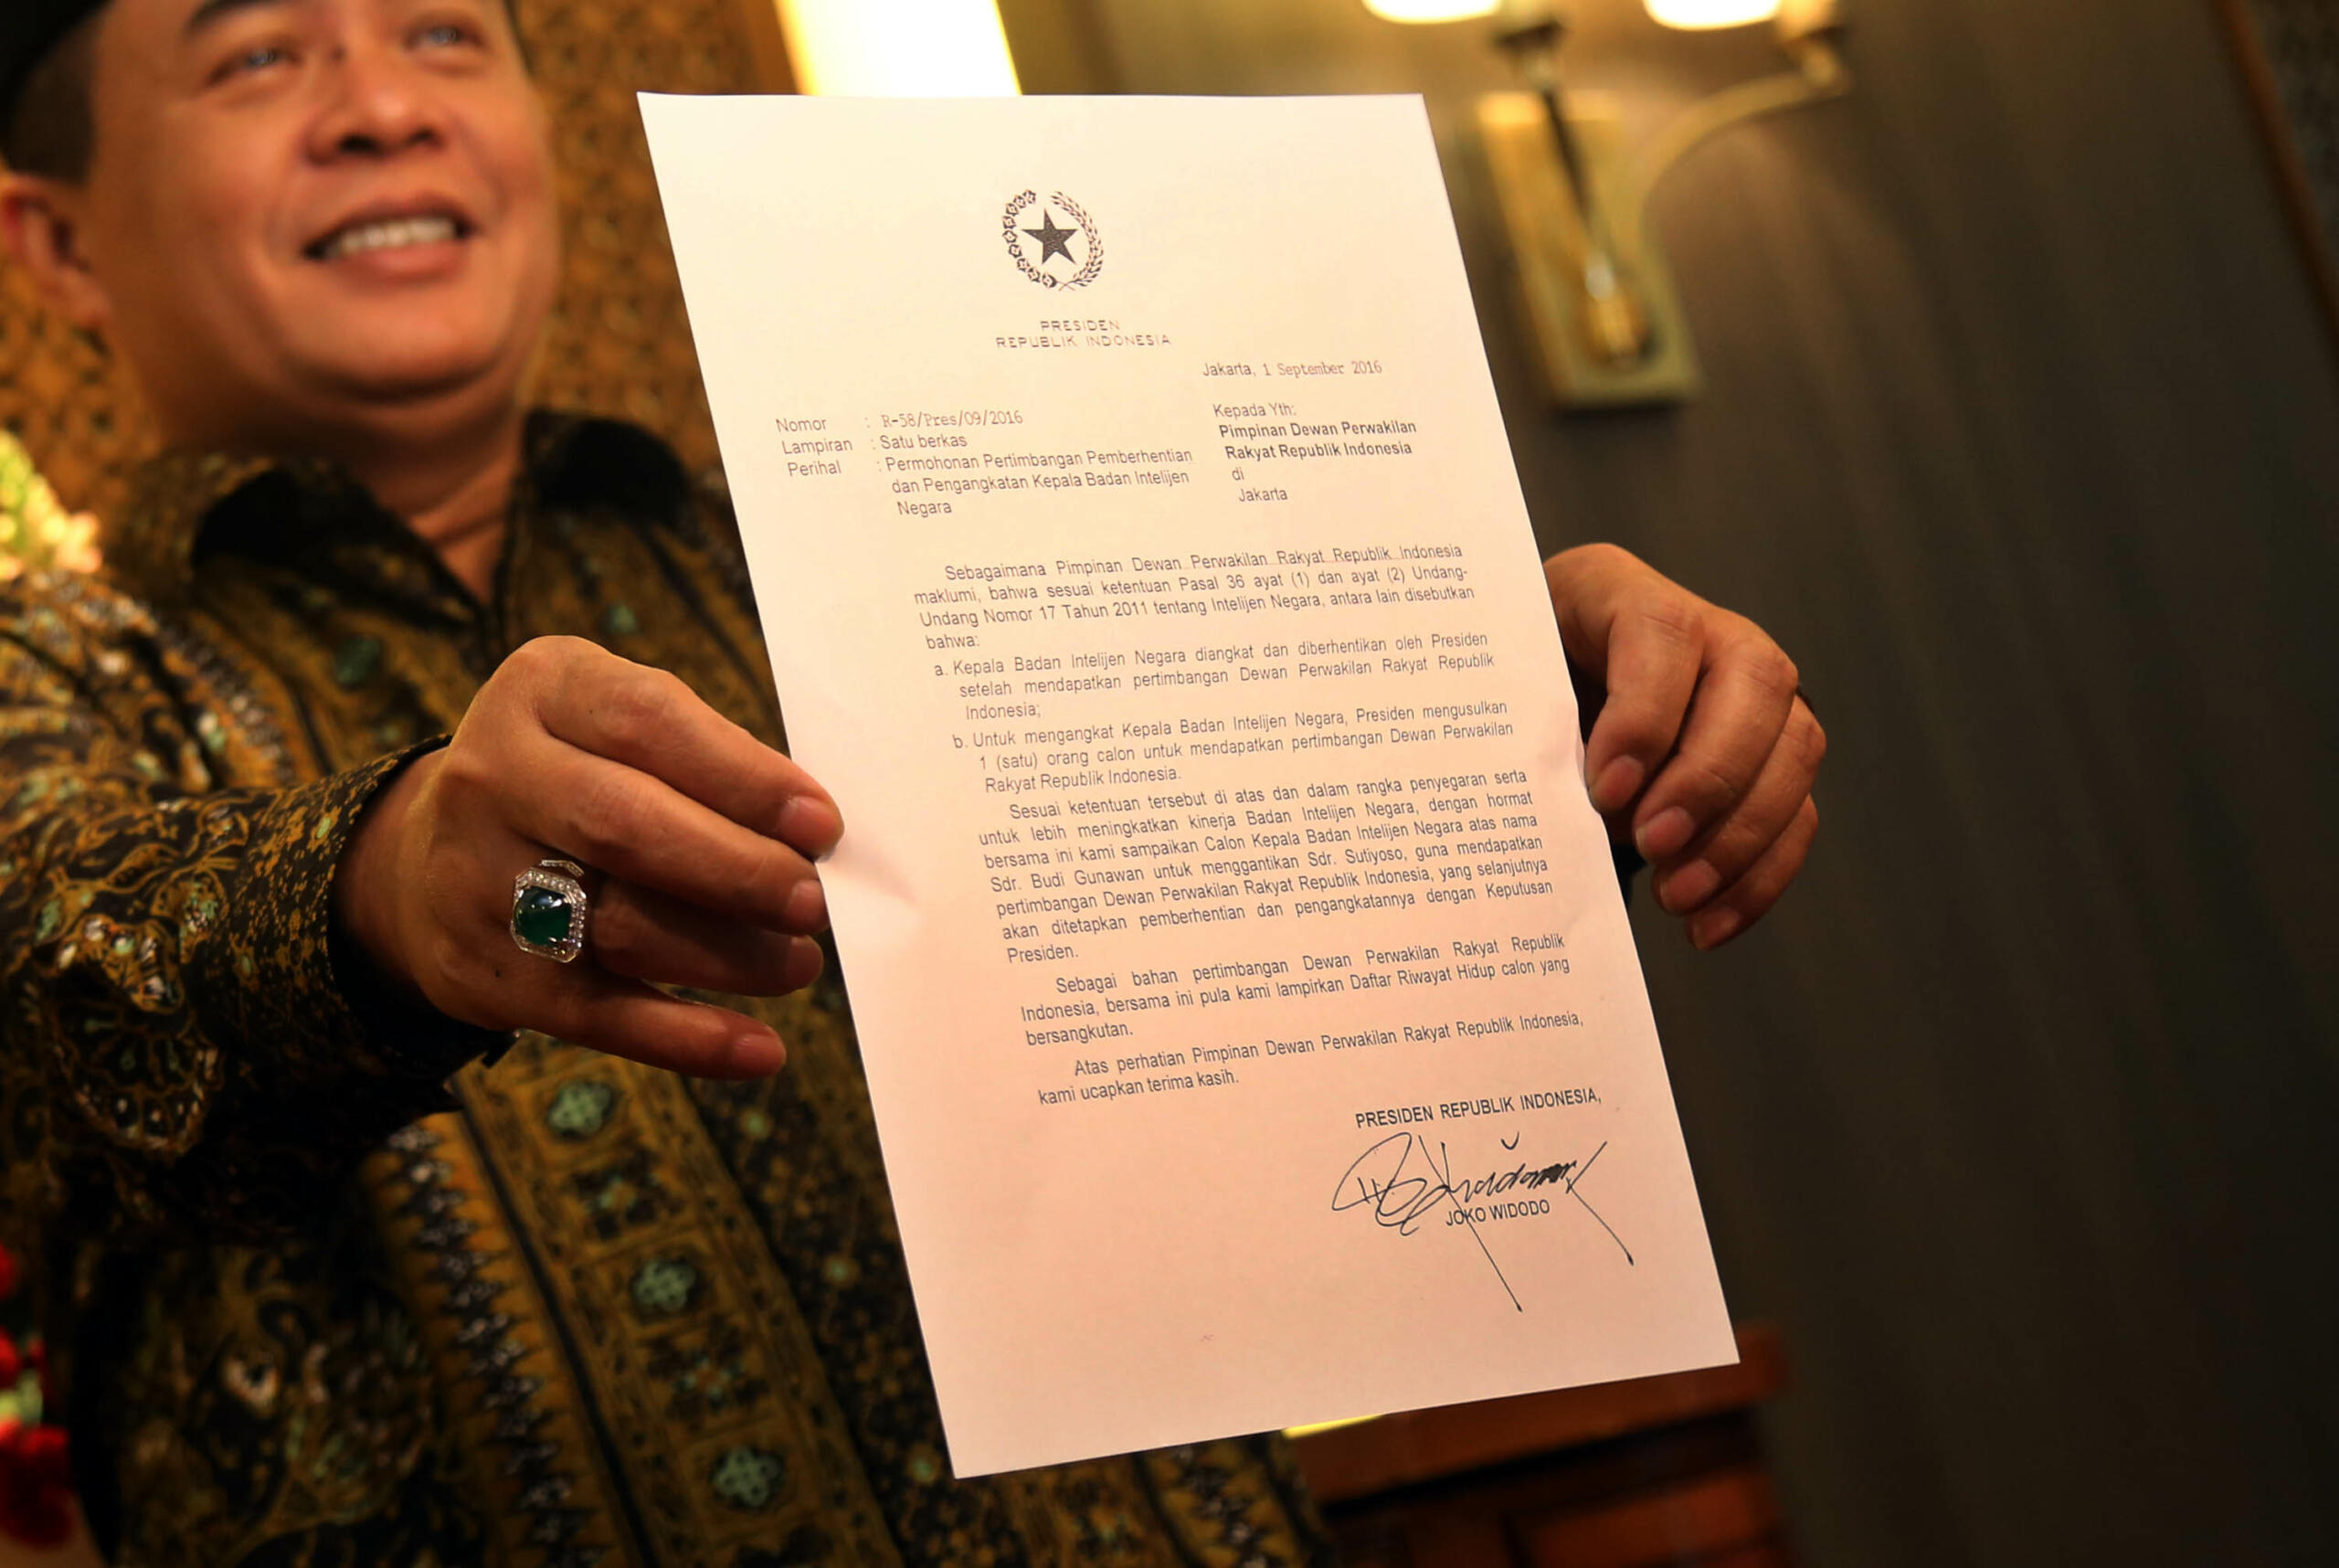 PRESIDEN
REPUBLIK INDONESIA
Jakarta, 1 September 2016
Nomor : R-58/Pres/09/2016
Lampiran : Satu berkas
Perihal : Permohonan Pertimbangan Pemberhentian
dan Pengangkatan Kepala Badan Intelijen
Negara
Kepada Yth:
Pimpinan Dewan Perwakilan
Rakyat Republik Indonesia
di
Jakarta
Sebagaimana Pimpinan Dewan Perwakilan Rakyat Republik Indonesia
maklumi, bahwa sesuai ketentuan Pasal 36 ayat (1) dan ayat (2) Undang-
Undang Nomor 17 Tahun 2011 tentang Intelijen Negara, antara lain disebutkan
bahwa:
a. Kepala Badan Intelijen Negara diangkat dan diberhentikan oleh Presiden
setelah mendapatkan pertimbangan Dewan Perwakilan Rakyat Republik
Indonesia;
b. Untuk mengangkat Kepala Badan Intelijen Negara, Presiden mengusulkan
1 (satu) orang calon untuk mendapatkan pertimbangan Dewan Perwakilan
Rakyat Republik Indonesia.
Sesuai ketentuan tersebut di atas dan dalam rangka penyegaran serta
untuk lebih meningkatkan kinerja Badan Intelijen Negara, dengan hormat
bersama ini kami sampaikan Calon Kepala Badan Intelijen Negara atas nama
Sdr. Budi Gunawan untuk menggantikan Sdr. Sutiyoso, guna mendapatkan
pertimbangan Dewan Perwakilan Rakyat Republik Indonesia, yang selanjutnya
akan ditetapkan pemberhentian dan pengangkatannya dengan Keputusan
Presiden.
Sebagai bahan pertimbangan Dewan Perwakilan Rakyat Republik
Indonesia, bersama ini pula kami lampirkan Daftar Riwayat Hidup calon yang
bersangkutan.
Atas perhatian Pimpinan Dewan Perwakilan Rakyat Republik Indonesia,
kami ucapkan terima kasih.
PRESIDEN REPUBLIK INDONESIA,
JOKO WIDODO